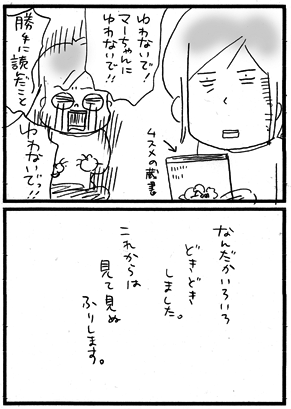 ゆわないで！
マーちゃんに
ゆわないで！！
勝手に読だこと
ゆわないでっ！！
ムスメの蔵書
なんだかいろいろ
どきどき
しました。
これからは
見て見ぬ
ふりします。